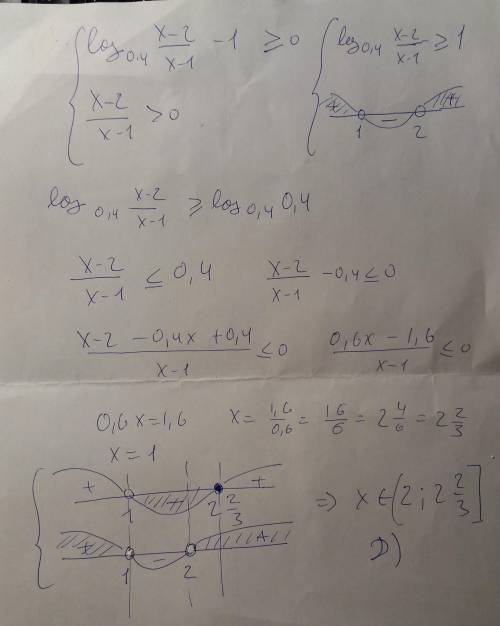 log₀,₄ (x-2)/(x-1) - 1 ≥ 0
(x-2)/(x-1) > 0
log₀,₄ (x-2)/(x-1) ≥ 1
+ - +
1 2
log₀,₄ (x-2)/(x-1) ≥ log₀,₄ 0,4
(x-2)/(x-1) ≤ 0,4 (x-2)/(x-1) - 0,4 ≤ 0
(x-2-0,4x+0,4)/(x-1) ≤ 0 (0,6x-1,6)/(x-1) ≤ 0
0,6x=1,6 x = 1,6/0,6 = 16/6 = 2 4/6 = 2 2/3
x = 1
+ +
1 2 2/3
-
1 2
=> x ∈ (2; 2 2/3]